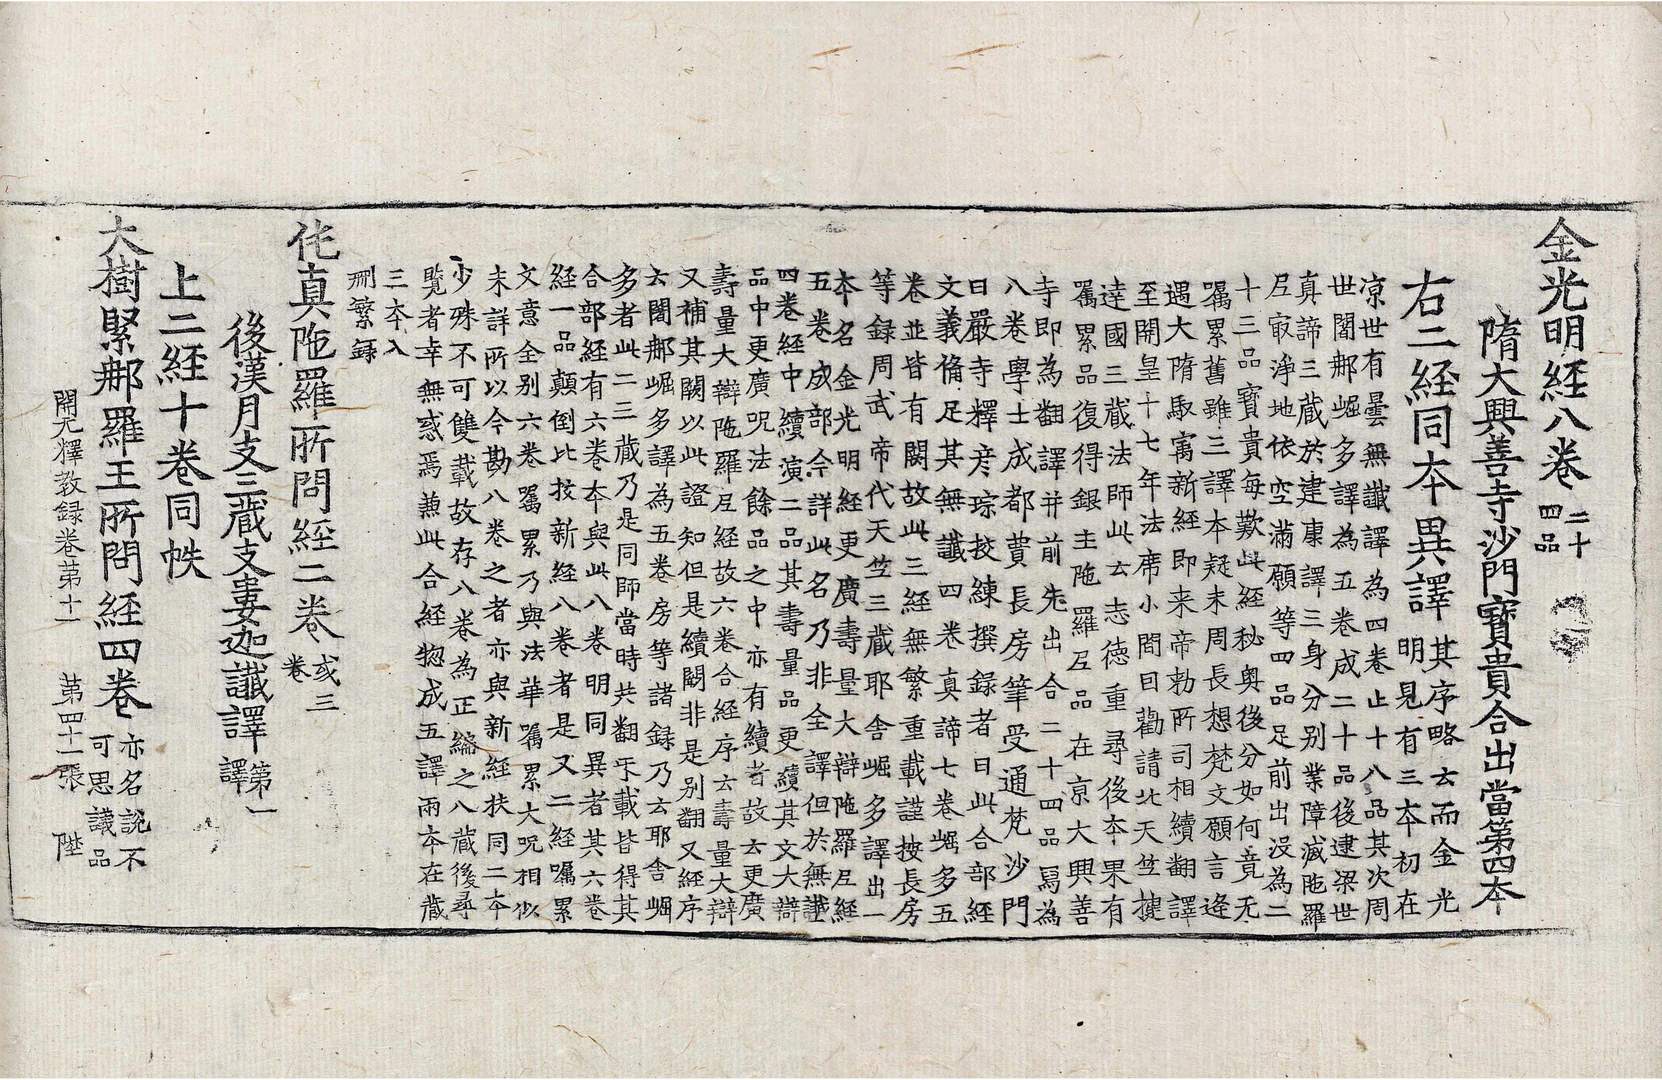 金光明経八卷 二十四品
隋大興善寺沙門寶貴合出當第四本
右二経同本異譯 其序略云而金光
明見有三本初在
涼世有曇無讖譯為四卷止十八品其次周
世闍那崛多譯為五卷成二十品後逮梁世
真諦三藏於建康譯三身分别業障滅陁羅
尼㝡淨地依空滿願等四品足前出没為二
十三品寶貴每歎此経秘奥後分如何竟无
嘱累舊雖三譯本疑未周長想梵文願言逢
遇大隋馭㝢新経即来帝勑所司相續翻譯
至開皇十七年法席小間曰勸請北天竺揵
達國三藏法師此云志德重尋後夲果有
嘱累品復得銀主陁羅尼品在京大興善
寺即為翻譯并前先出合二十四品寫為
八卷學士成都費長房筆受通梵沙門
日嚴寺釋彦琮挍練撰録者曰此合部経
文義俻足其無讖四卷真諦七卷崛多五
卷並皆有闕故此三経無繁重載謹按長房
等録周武帝代天竺三藏耶舍崛多譯出一
夲名金光明経更廣壽量大辯陁羅尼経
五卷成部仐詳此名乃非全譯但於無讖
四卷経中續演二品其壽量品更續其文大辯
品中更廣呪法餘品之中亦有續者故云更廣
壽量大辯陁羅尼経故六卷合経序云壽量大辯
又補其闕以此證知但是續闕非是别翻又経序
云闍那崛多譯為五卷房等諸録乃云耶舍崛
多者此二三藏乃是同師當時共翻互載皆得其
合部経有六卷夲與此八卷明同異者其六卷
経一品顛倒比挍新経八卷者是又二経嘱累
文意全别六卷嘱累乃與法華嘱累大呪相似
未詳所以今勘八卷之者亦與新経扶同二夲
少殊不可雙載故存八卷為正編之八藏後尋
覽者幸無惑焉兼此合経惣成五譯兩夲在藏
三夲入
刪繁録
伅真陁羅所問経二卷 或三卷
後漢月支三藏支婁迦讖譯 第一譯
上二経十卷同帙
大樹緊那羅王所問経四卷 亦名說不可思議品
開元釋教録卷第十一 第四十一張 陞